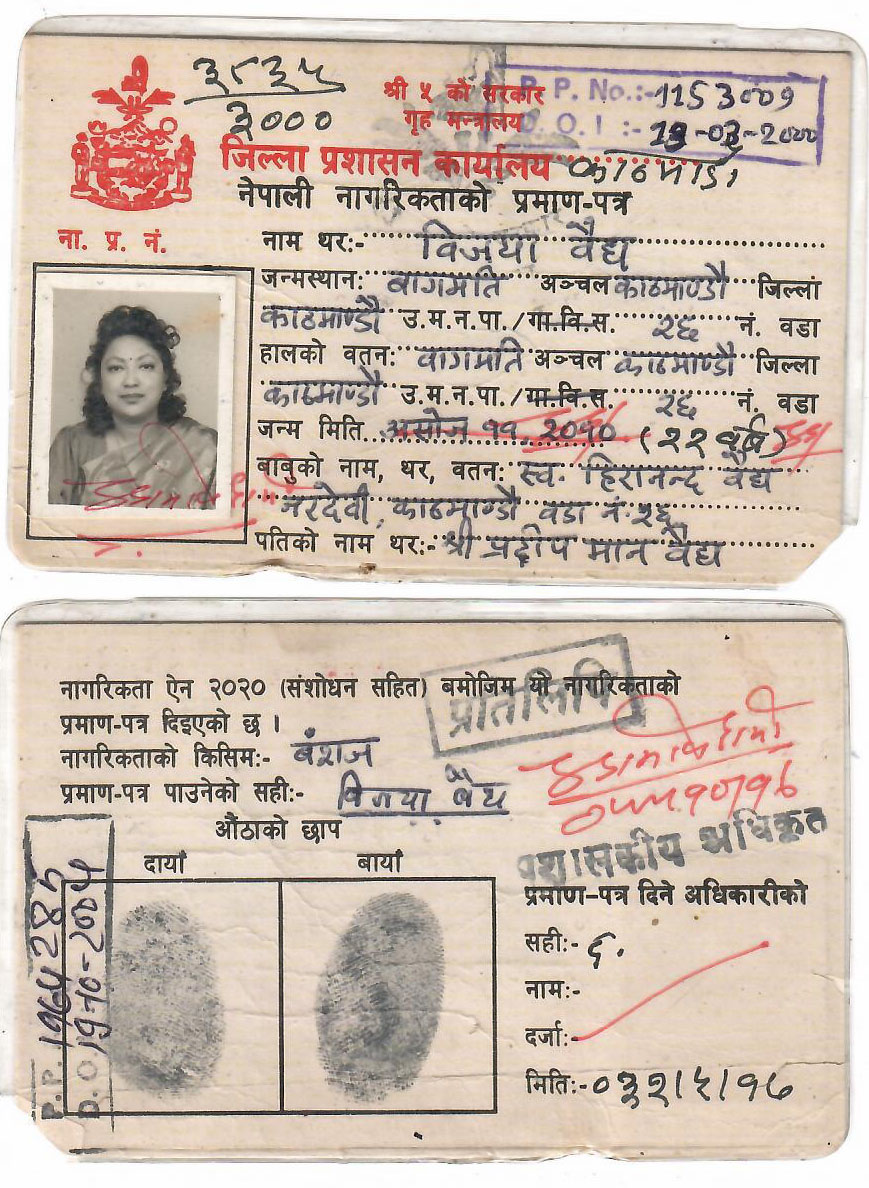 ३८३५
३०००
श्री ५ को सरकार
गृह मन्त्रालय
P. P. No.:-1153009
D. O. I :- 13-03-2000
जिल्ला प्रशासन कार्यालय काठमाडौं
नेपाली नागरिकताको प्रमाण-पत्र
ना. प्र. नं.
नाम थर:- विजया वैद्य
जन्मस्थान: बागमति अञ्चल काठमाण्डौ जिल्ला
काठमाण्डौ उ.म.न.पा./गा.वि.स. २६ नं. वडा
हालको वतन: बागमति अञ्चल काठमाण्डौ जिल्ला
काठमाण्डौ उ.म.न.पा./गा.वि.स. २६ नं. वडा
जन्म मिति असोज ११, २०१० (२२ वर्ष)
बाबुको नाम, थर, वतन: स्व. हिरानन्द वैद्य
नरदेवी, काठमाण्डौ वडा नं. २६
पतिको नाम थर:- श्री प्रदीप मान वैद्य
नागरिकता ऐन २०२० (संशोधन सहित) बमोजिम यो नागरिकताको
प्रमाण-पत्र दिइएको छ ।
प्रतिलिपि
नागरिकताको किसिम:- बंशज
प्रमाण-पत्र पाउनेको सही:- विजया वैद्य
औंठाको छाप
दायाँ बायाँ
P. P. 1964285
D. O. 19-10-2004
प्रशासकीय अधिकृत
प्रमाण-पत्र दिने अधिकारीको
सही:- द.
नाम:-
दर्जा:-
मिति:- ०३२।५।१६